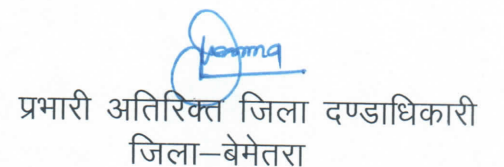 प्रभारी अतिरिक्त जिला दण्डाधिकारी
जिला–बेमेतरा